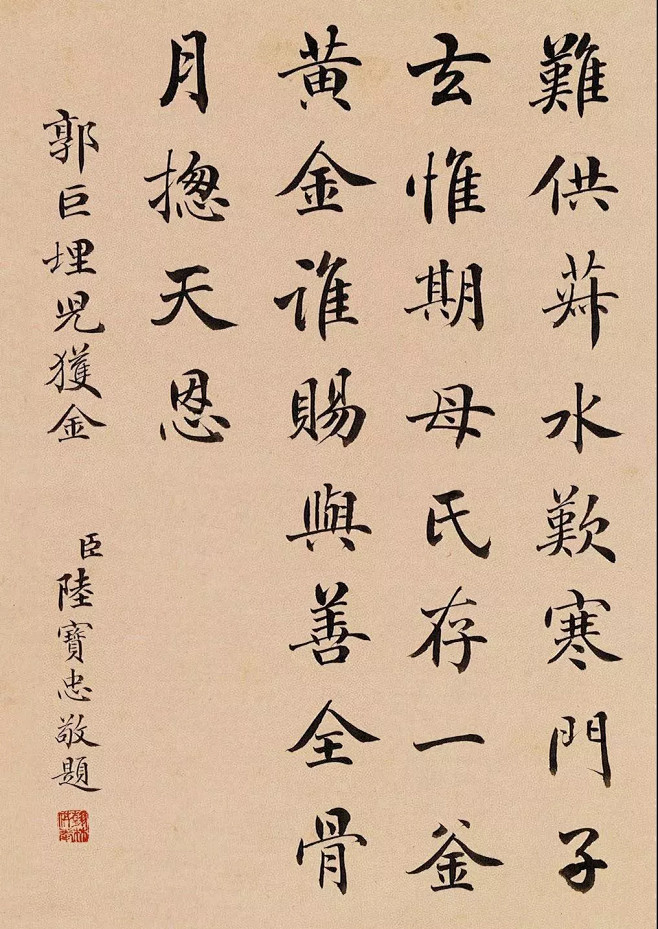 難供菽水歎寒門子
玄惟期母氏存一釜
黃金誰賜與善全骨
月摠天恩
郭巨埋兒獲金
臣陸寶忠敬題